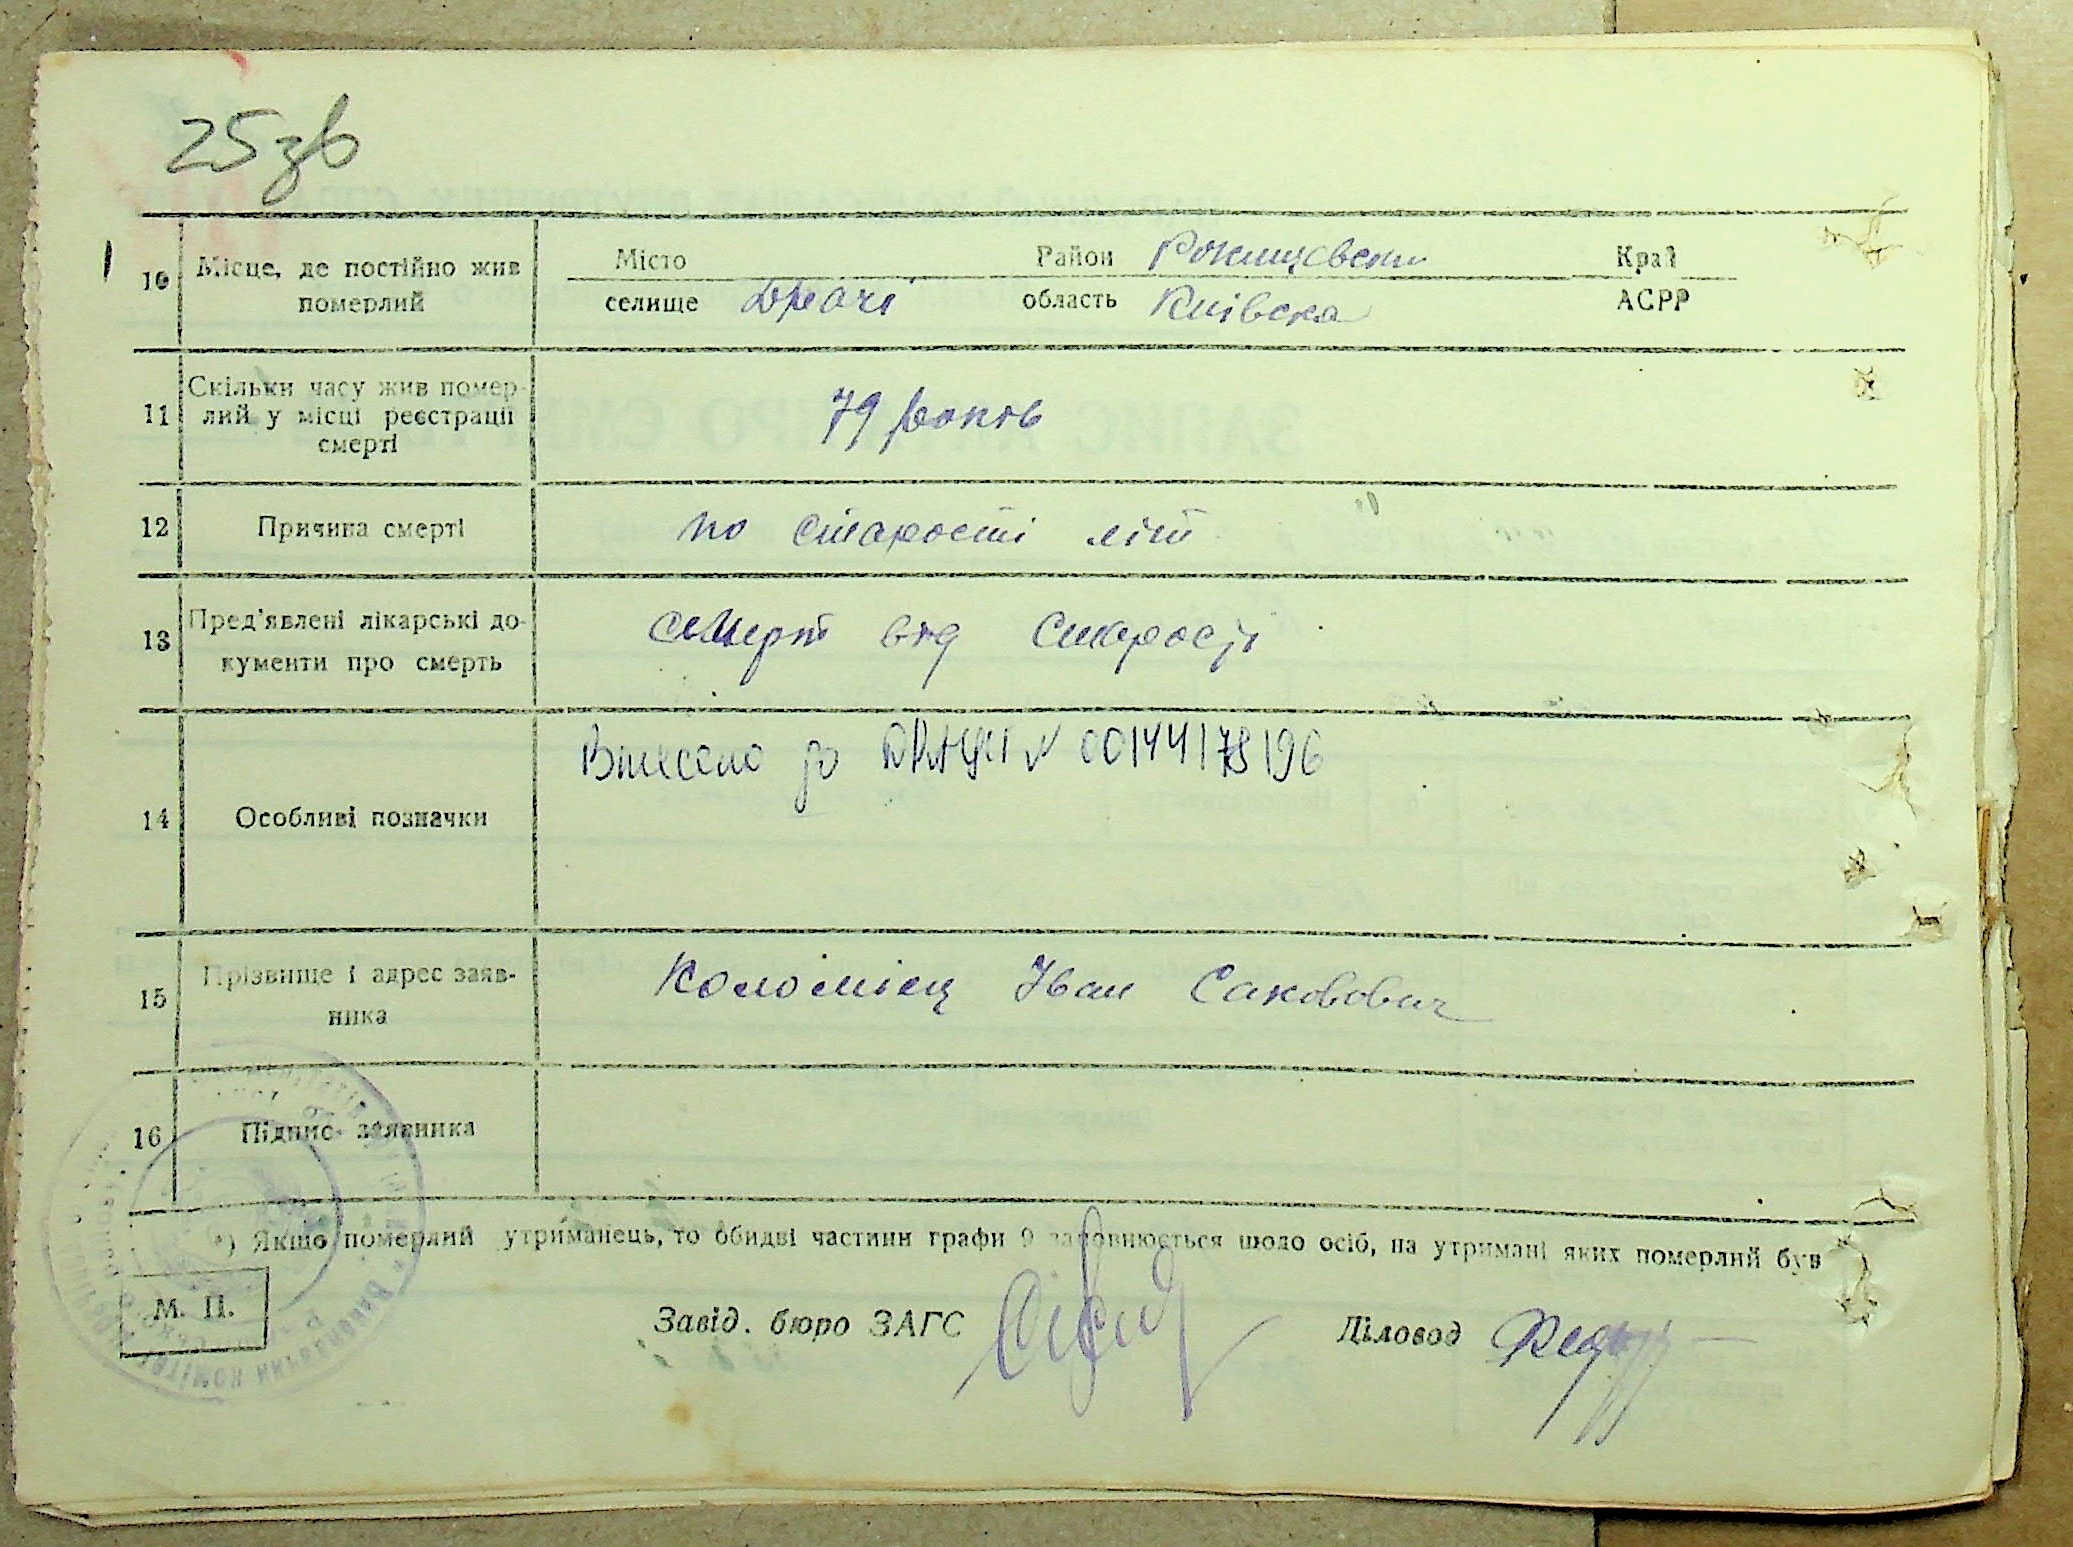 25зв
10 Місце, де постійно жив померлий
Місто Район Рокитсвски Край
селище Ѳрачі область Київска АСРР
11 Скільки часу жив помер-
лий у місці реєстрації
смерті
79 років
12 Причина смерті по старості літ
13 Пред'явлені лікарські до-
кументи про смерть
смерт від старості
14 Особливі позначки
Внесено до ДРАЦСГ № 00144178196
15 Прізвище і адрес заяв-
ника
Коломієц Іван Саковович
16 Підпис заявника
*) Якщо померлий утриманець, то обидві частини графи 9 заповнюється щодо осіб, на утримані яких померлий був
М. П.
Завід. бюро ЗАГС Діловод